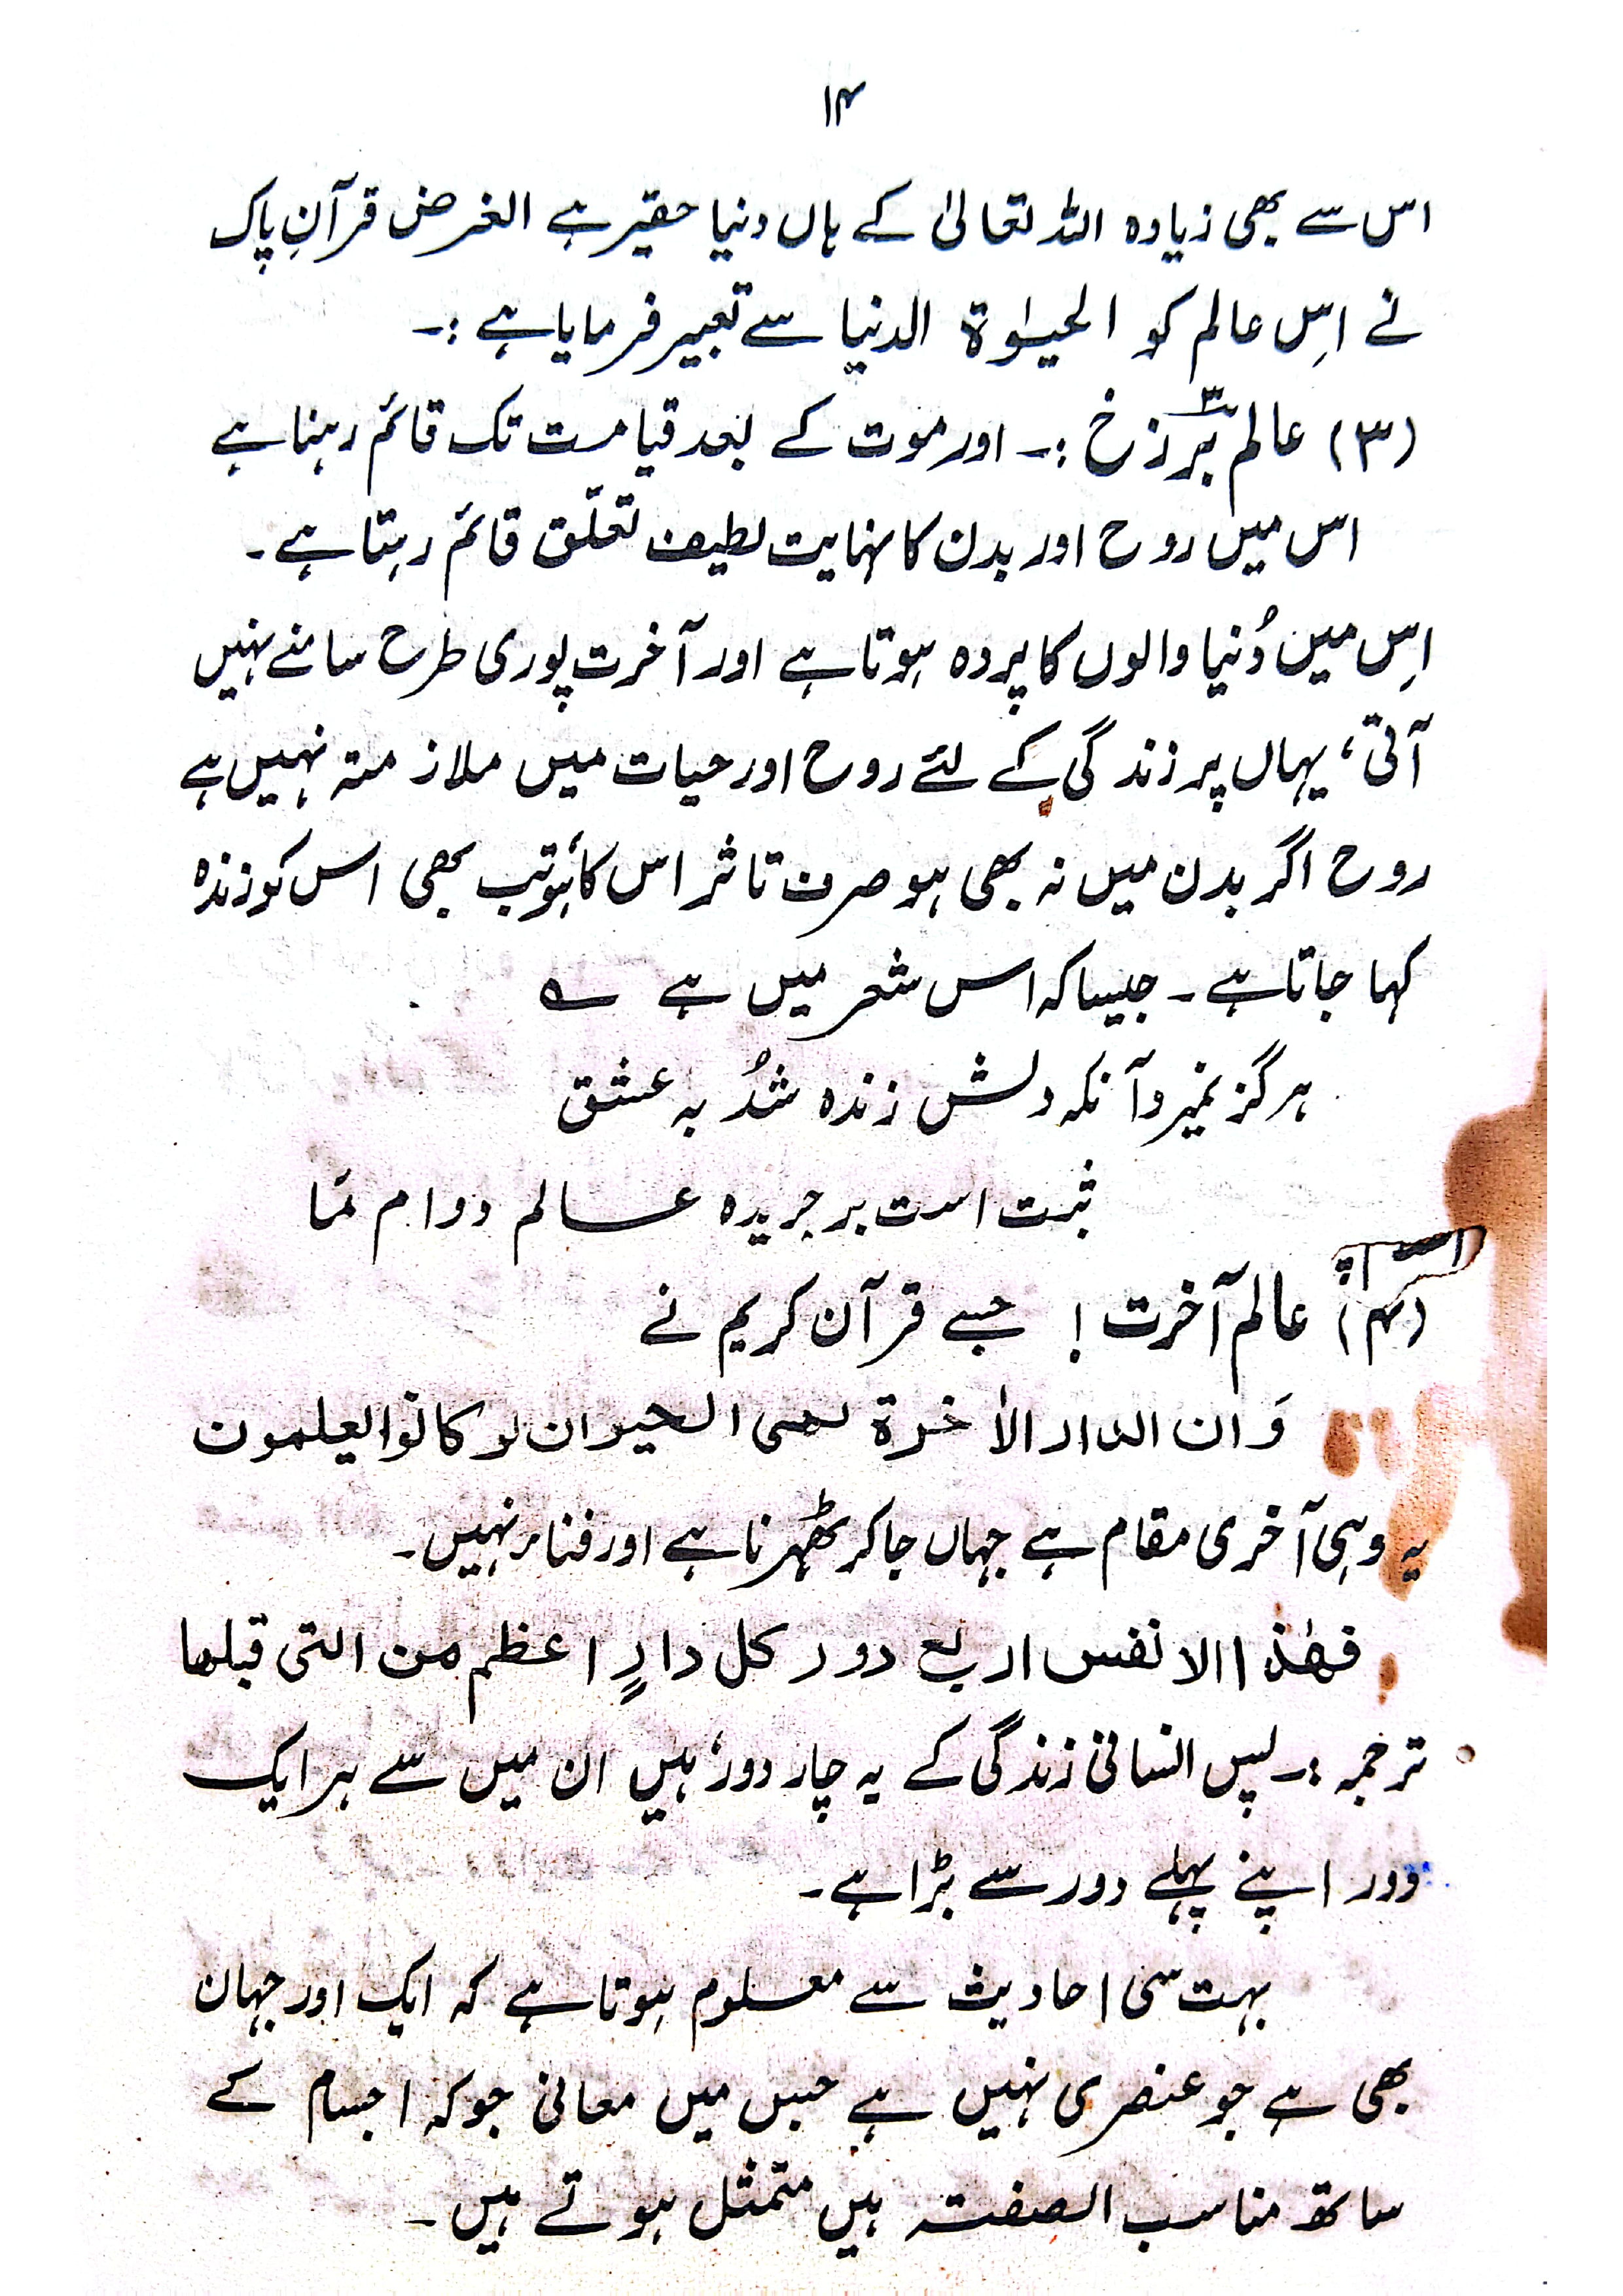 ۱۴
اس سے بھی زیادہ اللہ تعالیٰ کے ہاں دنیا حقیر ہے الغرض قرآنِ پاک
نے اِس عالم کو الحیٰوۃ الدنیا سے تعبیر فرمایا ہے :۔
(۳) عالم برزخ :۔ اور موت کے بعد قیامت تک قائم رہنا ہے
اس میں روح اور بدن کا نہایت لطیف تعلّق قائم رہتا ہے ۔
اِس میں دُنیا والوں کا پردہ ہوتا ہے اور آخرت پوری طرح سامنے نہیں
آتی، یہاں پر زندگی کے لئے روح اور حیات میں ملازمتہ نہیں ہے
روح اگر بدن میں نہ بھی ہو صرف تاثر اس کا ہو تب بھی اس کو زندہ
کہا جاتا ہے ۔ جیسا کہ اس شعر میں ہے ؎
ہرگز نمیرد آنکہ دلش زندہ شدُ بہ عشق
ثبت است بر جریدہ عالم دوام مَا
(۴) عالم آخرت ! جسے قرآن کریم نے
وَ ان الدار الاٰخرۃ لھی الحیوان لو کانوا یعلمون
یہ وہی آخری مقام ہے جہاں جا کر ٹھہرنا ہے اور فناء نہیں ۔
فھٰذا الانفس اربع دور کل دارٍ اعظم من التی قبلھا
ترجمہ :۔ پس انسانی زندگی کے یہ چار دور ہیں ان میں سے ہر ایک
دور اپنے پہلے دور سے بڑا ہے ۔
بہت سی احادیث سے معلوم ہوتا ہے کہ ایک اور جہان
بھی ہے جو عنصری نہیں ہے جس میں معانی جو کہ اجسام کے
ساتھ مناسب الصفتہ ہیں متمثل ہوتے ہیں ۔